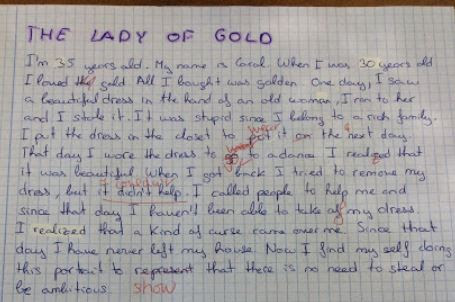 THE LADY OF GOLD
I'm 35 years old. My name is Carol. When I was 30 years old
I loved the gold All I bought was golden. One day, I saw
a beautiful dress in the hand of an old woman, I ran to her
and I stole it. It was stupid since I belong to a rich family.
wear
I put the dress in the closet to put it on the next day.
That day I wore the dress to go to a dance I realized that
it was beautiful. When I got back I tried to remove my
I couldn't
dress, but it didn't help. I called people to help me and
since that day I haven't been able to take off my dress.
I realized that a kind of curse came over me. Since that
day I have never left my house. Now I find my self doing
this portrait to represent that there is no need to steal or
be ambitious. show